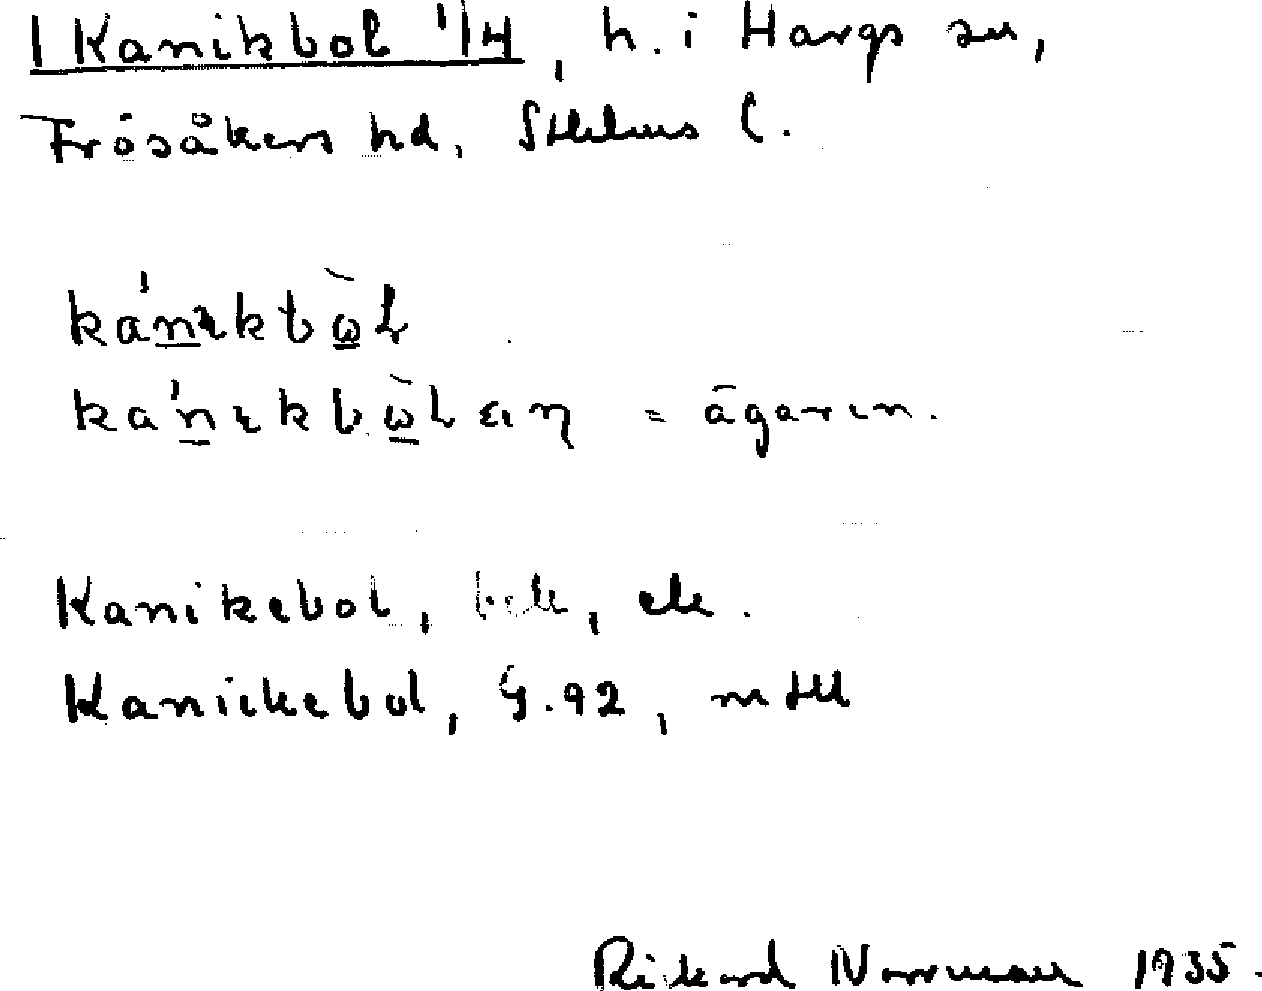 Kanikbol 1/4, h. i Hargs sn,
Frösåkers hd, Sthlms l.
kánıkbὼl
kánıkbὼlαn = ägaren.
Kanikebol, bok, ek.
Kanickebol, G. 92, mtll
Rikard Norrman 1935.